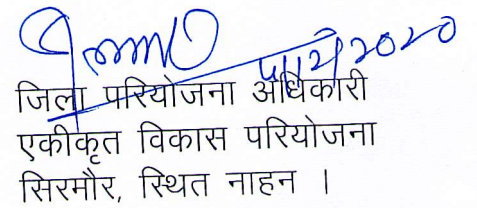 जिला परियोजना अधिकारी
एकीकृत विकास परियोजना
सिरमौर, स्थित नाहन ।